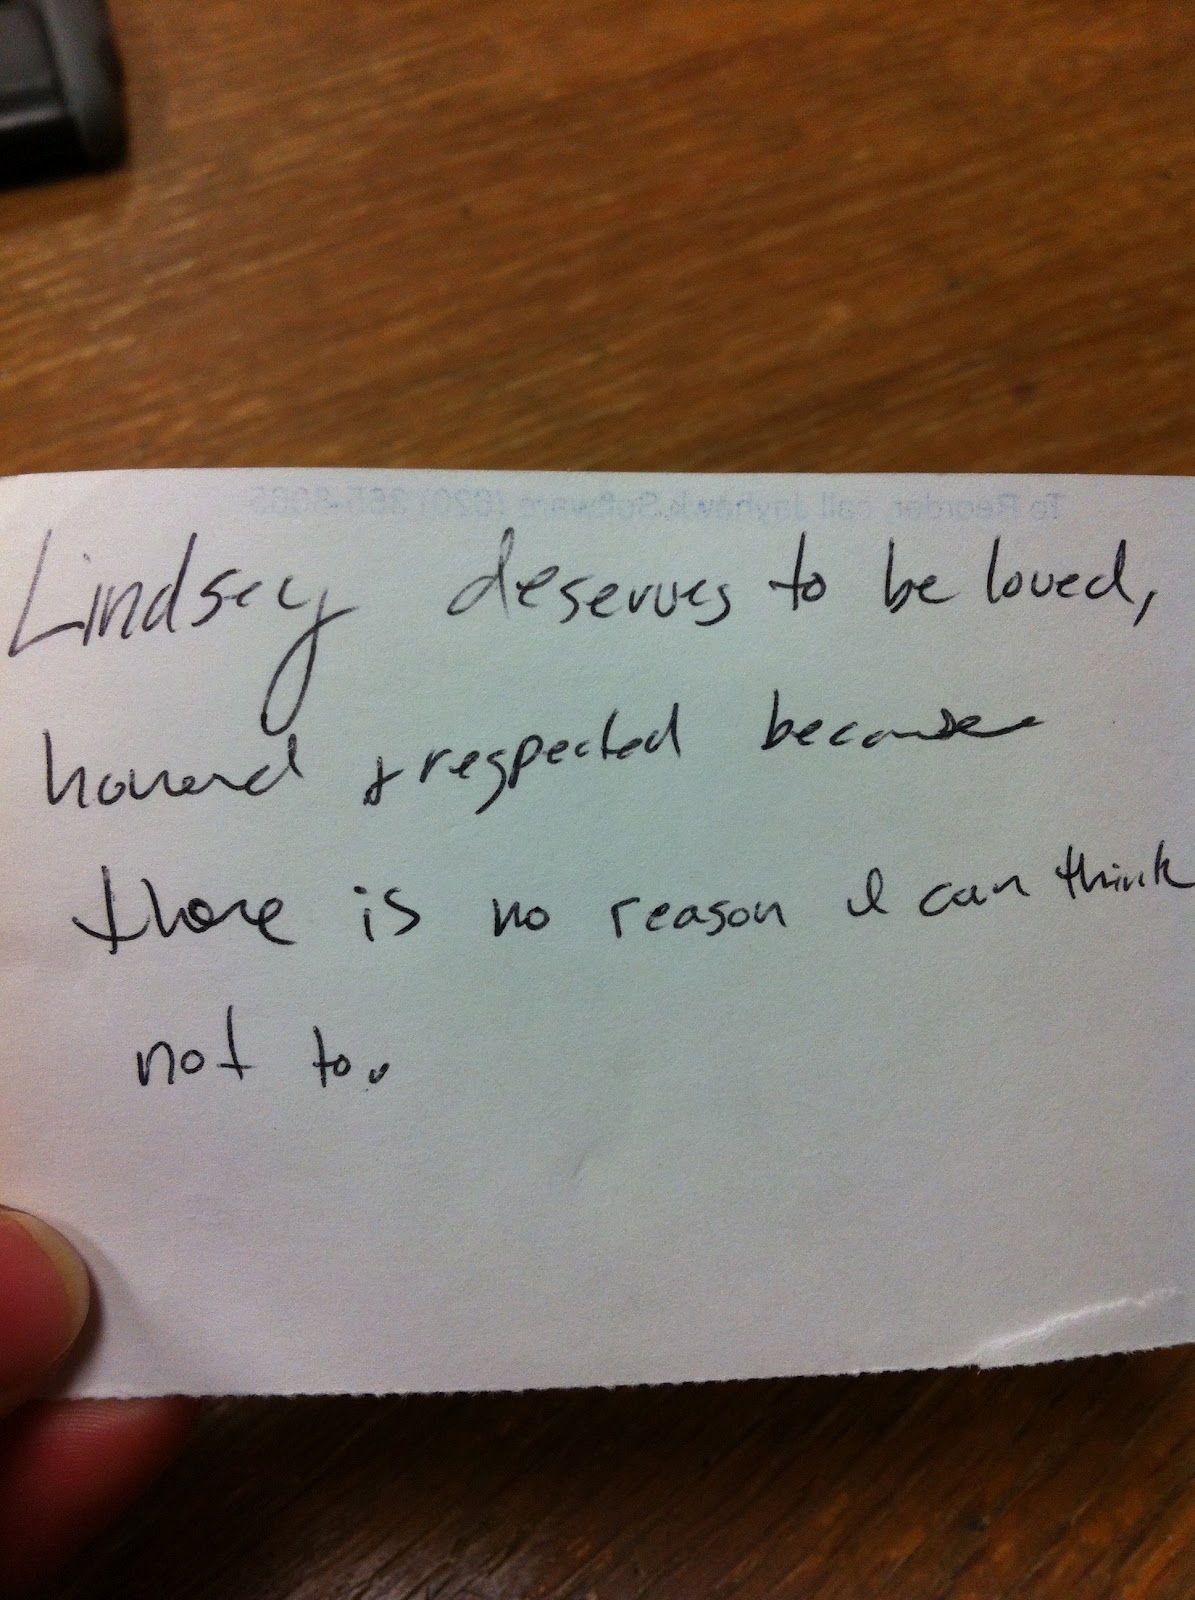 To Reorder, call Jayhawk Software (620) 365-8065
Lindsey deserves to be loved,
honored & respected because
there is no reason I can think
not to.